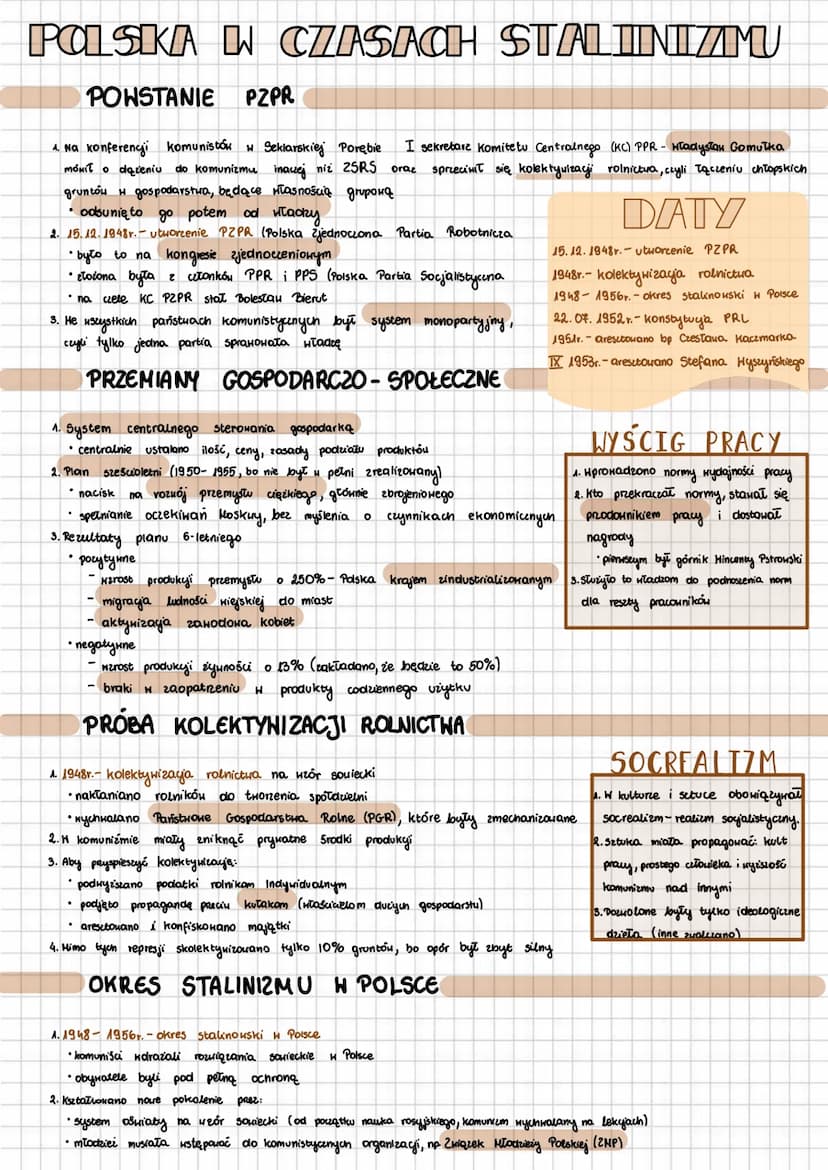 POLSKA W CZASACH STALINIZMU
POWSTANIE PZPR
1. Na konferencji komunistów w Szklarskiej Porębie I sekretarz Komitetu Centralnego (KC) PPR - Władysław Gomułka
mówił o dążeniu do komunizmu inaczej niż ZSRS oraz sprzeciwił się kolektywizacji rolnictwa, czyli łączeniu chłopskich
gruntów w gospodarstwa, będące własnością grupową
• odsunięto go potem od władzy
2. 15.12.1948r. - utworzenie PZPR (Polska Zjednoczona Partia Robotnicza
• było to na kongresie zjednoczeniowym
• złożona była z członków PPR i PPS (Polska Partia Socjalistyczna
• na czele KC PZPR stał Bolesław Bierut
3. We wszystkich państwach komunistycznych był system monopartyjny,
czyli tylko jedna partia sprawowała władzę
DATY
15.12.1948r. - utworzenie PZPR
1948r. - kolektywizacja rolnictwa
1948 - 1956r. - okres stalinowski w Polsce
22.07.1952r. - konstytucja PRL
1951r. - aresztowano bp Czesława Kaczmarka
IX 1953r. - aresztowano Stefana Wyszyńskiego
PRZEMIANY GOSPODARCZO - SPOŁECZNE
1. System centralnego sterowania gospodarką
• centralnie ustalano ilość, ceny, zasady podziału produktów
2. Plan sześcioletni (1950 - 1955, bo nie był w pełni zrealizowany)
• nacisk na rozwój przemysłu ciężkiego, głównie zbrojeniowego
• spełnianie oczekiwań Moskwy, bez myślenia o czynnikach ekonomicznych
3. Rezultaty planu 6-letniego
• pozytywne
- wzrost produkcji przemysłu o 250% - Polska krajem zindustrializowanym
- migracja ludności wiejskiej do miast
- aktywizacja zawodowa kobiet
• negatywne
- wzrost produkcji żywności o 13% (zakładano, że będzie to 50%)
- braki w zaopatrzeniu w produkty codziennego użytku
WYŚCIG PRACY
1. Wprowadzono normy wydajności pracy
2. Kto przekraczał normy, stawał się
przodownikiem pracy i dostawał
nagrody
• pierwszym był górnik Wincenty Pstrowski
3. Służyło to władzom do podnoszenia norm
dla reszty pracowników
PRÓBA KOLEKTYWIZACJI ROLNICTWA
1. 1948r. - kolektywizacja rolnictwa na wzór sowiecki
• nakłaniano rolników do tworzenia spółdzielni
• wychwalano Państwowe Gospodarstwa Rolne (PGR), które były zmechanizowane
2. W komunizmie miały zniknąć prywatne środki produkcji
3. Aby przyspieszyć kolektywizację:
• podwyższano podatki rolnikom indywidualnym
• podjęto propagandę przeciw kułakom (właścicielom dużych gospodarstw)
• aresztowano i konfiskowano majątki
4. Mimo tych represji skolektywizowano tylko 10% gruntów, bo opór był zbyt silny
SOCREALIZM
1. W kulturze i sztuce obowiązywał
socrealizm - realizm socjalistyczny.
2. Sztuka miała propagować: kult
pracy, prostego człowieka i wyższość
komunizmu nad innymi
3. Dozwolone były tylko ideologiczne
dzieła (inne zwalczano)
OKRES STALINIZMU W POLSCE
1. 1948 - 1956r. - okres stalinowski w Polsce
• komuniści wdrażali rozwiązania sowieckie w Polsce
• obywatele byli pod pełną ochroną
2. Kształtowano nowe pokolenie przez:
• system oświaty na wzór sowiecki (od początku nauka rosyjskiego, komunizm wychwalany na lekcjach)
• młodzież musiała wstępować do komunistycznych organizacji, np Związek Młodzieży Polskiej (ZMP)